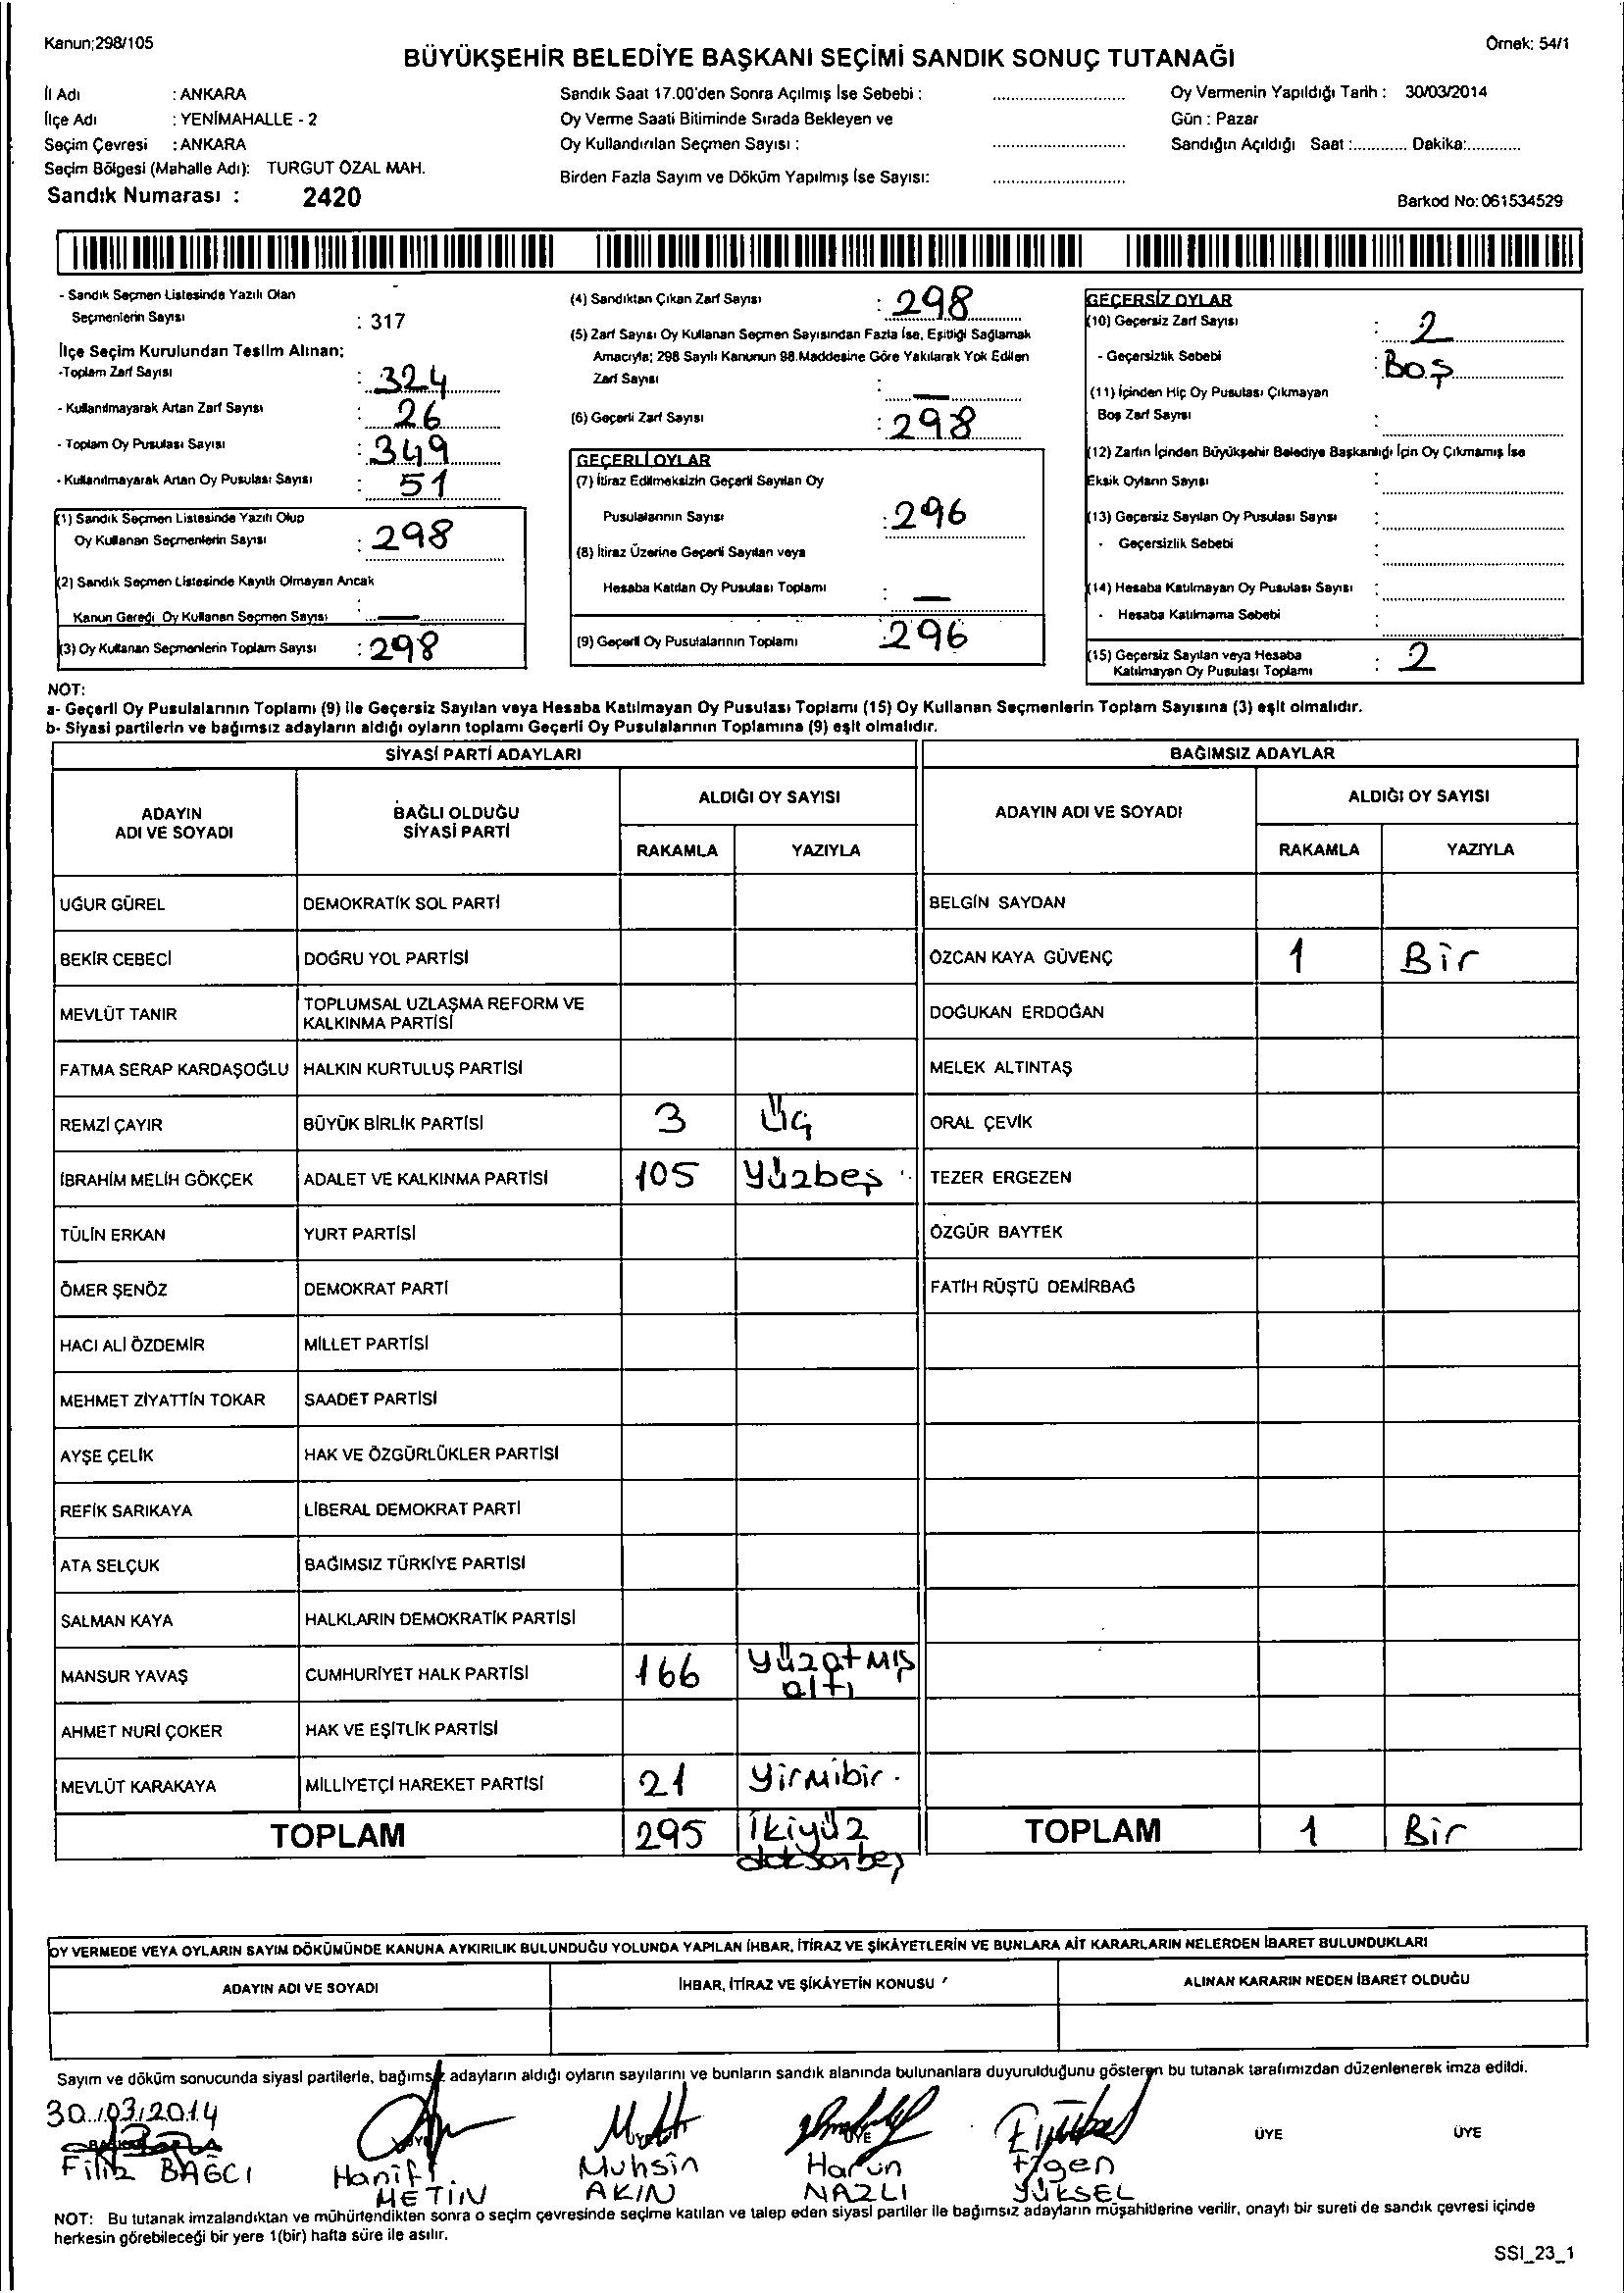 Kanun;298/105
Örnek: 54/1
BÜYÜKŞEHİR BELEDİYE BAŞKANI SEÇİMİ SANDIK SONUÇ TUTANAĞI
İl Adı : ANKARA
İlçe Adı : YENİMAHALLE - 2
Seçim Çevresi : ANKARA
Seçim Bölgesi (Mahalle Adı): TURGUT ÖZAL MAH.
Sandık Numarası : 2420
Sandık Saat 17.00'den Sonra Açılmış İse Sebebi :
Oy Verme Saati Bitiminde Sırada Bekleyen ve
Oy Kullandırılan Seçmen Sayısı :
Birden Fazla Sayım ve Döküm Yapılmış İse Sayısı:
Oy Vermenin Yapıldığı Tarih : 30/03/2014
Gün : Pazar
Sandığın Açıldığı Saat :............ Dakika:............
Barkod No: 061534529
- Sandık Seçmen Listesinde Yazılı Olan
Seçmenlerin Sayısı : 317
İlçe Seçim Kurulundan Teslim Alınan;
-Toplam Zarf Sayısı : 324
- Kullanılmayarak Artan Zarf Sayısı : 26
- Toplam Oy Pusulası Sayısı : 349
- Kullanılmayarak Artan Oy Pusulası Sayısı : 51
(1) Sandık Seçmen Listesinde Yazılı Olup
Oy Kullanan Seçmenlerin Sayısı : 298
(2) Sandık Seçmen Listesinde Kayıtlı Olmayan Ancak
Kanun Gereği Oy Kullanan Seçmen Sayısı : —
(3) Oy Kullanan Seçmenlerin Toplam Sayısı : 298
(4) Sandıktan Çıkan Zarf Sayısı : 298
(5) Zarf Sayısı Oy Kullanan Seçmen Sayısından Fazla İse, Eşitliği Sağlamak
Amacıyla; 298 Sayılı Kanunun 98.Maddesine Göre Yakılarak Yok Edilen
Zarf Sayısı : —
(6) Geçerli Zarf Sayısı : 298
GEÇERLİ OYLAR
(7) İtiraz Edilmeksizin Geçerli Sayılan Oy
Pusulalarının Sayısı : 296
(8) İtiraz Üzerine Geçerli Sayılan veya
Hesaba Katılan Oy Pusulası Toplamı : —
(9) Geçerli Oy Pusulalarının Toplamı : 296
GEÇERSİZ OYLAR
(10) Geçersiz Zarf Sayısı : 2
- Geçersizlik Sebebi : Boş
(11) İçinden Hiç Oy Pusulası Çıkmayan
Boş Zarf Sayısı :
(12) Zarfın İçinden Büyükşehir Belediye Başkanlığı İçin Oy Çıkmamış İse
Eksik Oyların Sayısı :
(13) Geçersiz Sayılan Oy Pusulası Sayısı :
- Geçersizlik Sebebi :
(14) Hesaba Katılmayan Oy Pusulası Sayısı :
- Hesaba Katılmama Sebebi :
(15) Geçersiz Sayılan veya Hesaba
Katılmayan Oy Pusulası Toplamı : 2
NOT:
a- Geçerli Oy Pusulalarının Toplamı (9) ile Geçersiz Sayılan veya Hesaba Katılmayan Oy Pusulası Toplamı (15) Oy Kullanan Seçmenlerin Toplam Sayısına (3) eşit olmalıdır.
b- Siyasi partilerin ve bağımsız adayların aldığı oyların toplamı Geçerli Oy Pusulalarının Toplamına (9) eşit olmalıdır.
SİYASİ PARTİ ADAYLARI BAĞIMSIZ ADAYLAR
ADAYIN ADI VE SOYADI BAĞLI OLDUĞU SİYASİ PARTİ ALDIĞI OY SAYISI ADAYIN ADI VE SOYADI ALDIĞI OY SAYISI
RAKAMLA YAZIYLA RAKAMLA YAZIYLA
UĞUR GÜREL DEMOKRATİK SOL PARTİ BELGİN SAYDAN
BEKİR CEBECİ DOĞRU YOL PARTİSİ ÖZCAN KAYA GÜVENÇ 1 Bir
MEVLÜT TANIR TOPLUMSAL UZLAŞMA REFORM VE KALKINMA PARTİSİ DOĞUKAN ERDOĞAN
FATMA SERAP KARDAŞOĞLU HALKIN KURTULUŞ PARTİSİ MELEK ALTINTAŞ
REMZİ ÇAYIR BÜYÜK BİRLİK PARTİSİ 3 Üç ORAL ÇEVİK
İBRAHİM MELİH GÖKÇEK ADALET VE KALKINMA PARTİSİ 105 yüzbeş TEZER ERGEZEN
TÜLİN ERKAN YURT PARTİSİ ÖZGÜR BAYTEK
ÖMER ŞENÖZ DEMOKRAT PARTİ FATİH RÜŞTÜ DEMİRBAĞ
HACI ALİ ÖZDEMİR MİLLET PARTİSİ
MEHMET ZİYATTİN TOKAR SAADET PARTİSİ
AYŞE ÇELİK HAK VE ÖZGÜRLÜKLER PARTİSİ
REFİK SARIKAYA LİBERAL DEMOKRAT PARTİ
ATA SELÇUK BAĞIMSIZ TÜRKİYE PARTİSİ
SALMAN KAYA HALKLARIN DEMOKRATİK PARTİSİ
MANSUR YAVAŞ CUMHURİYET HALK PARTİSİ 166 yüzatmış altı
AHMET NURİ ÇOKER HAK VE EŞİTLİK PARTİSİ
MEVLÜT KARAKAYA MİLLİYETÇİ HAREKET PARTİSİ 21 yirmibir
TOPLAM 295 İkiyüz doksanbeş TOPLAM 1 Bir
OY VERMEDE VEYA OYLARIN SAYIM DÖKÜMÜNDE KANUNA AYKIRILIK BULUNDUĞU YOLUNDA YAPILAN İHBAR, İTİRAZ VE ŞİKÂYETLERİN VE BUNLARA AİT KARARLARIN NELERDEN İBARET BULUNDUKLARI
ADAYIN ADI VE SOYADI İHBAR, İTİRAZ VE ŞİKÂYETİN KONUSU ALINAN KARARIN NEDEN İBARET OLDUĞU
Sayım ve döküm sonucunda siyasi partilerle, bağımsız adayların aldığı oyların sayılarını ve bunların sandık alanında bulunanlara duyurulduğunu gösteren bu tutanak tarafımızdan düzenlenerek imza edildi.
30/03/2014
ÜYE ÜYE ÜYE ÜYE
Filiz BAĞCI Hanifi METİN Muhsin AKIN Harun NAZLI Figen YÜKSEL
NOT: Bu tutanak imzalandıktan ve mühürlendikten sonra o seçim çevresinde seçime katılan ve talep eden siyasi partiler ile bağımsız adayların müşahitlerine verilir, onaylı bir sureti de sandık çevresi içinde
herkesin görebileceği bir yere 1(bir) hafta süre ile asılır.
SSI_23_1